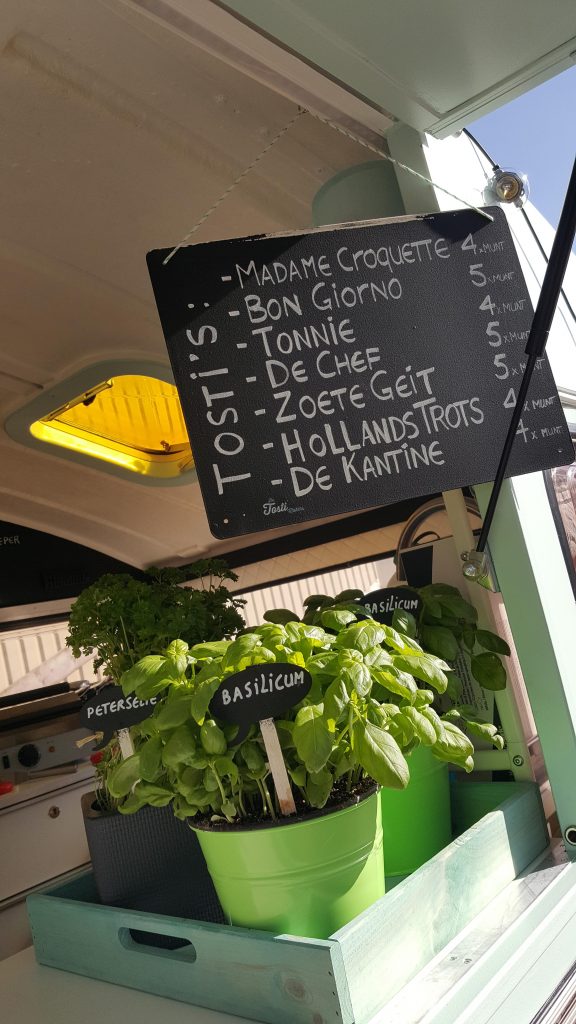 TOSTI'S:
- MADAME CROQUETTE 4 x MUNT
- BON GIORNO 5 x MUNT
- TONNIE 4 x MUNT
- DE CHEF 5 x MUNT
- ZOETE GEIT 5 x MUNT
- HOLLANDS TROTS 4 x MUNT
- DE KANTINE 4 x MUNT
Tosti
BASILICUM
PETERSELIE
BASILICUM